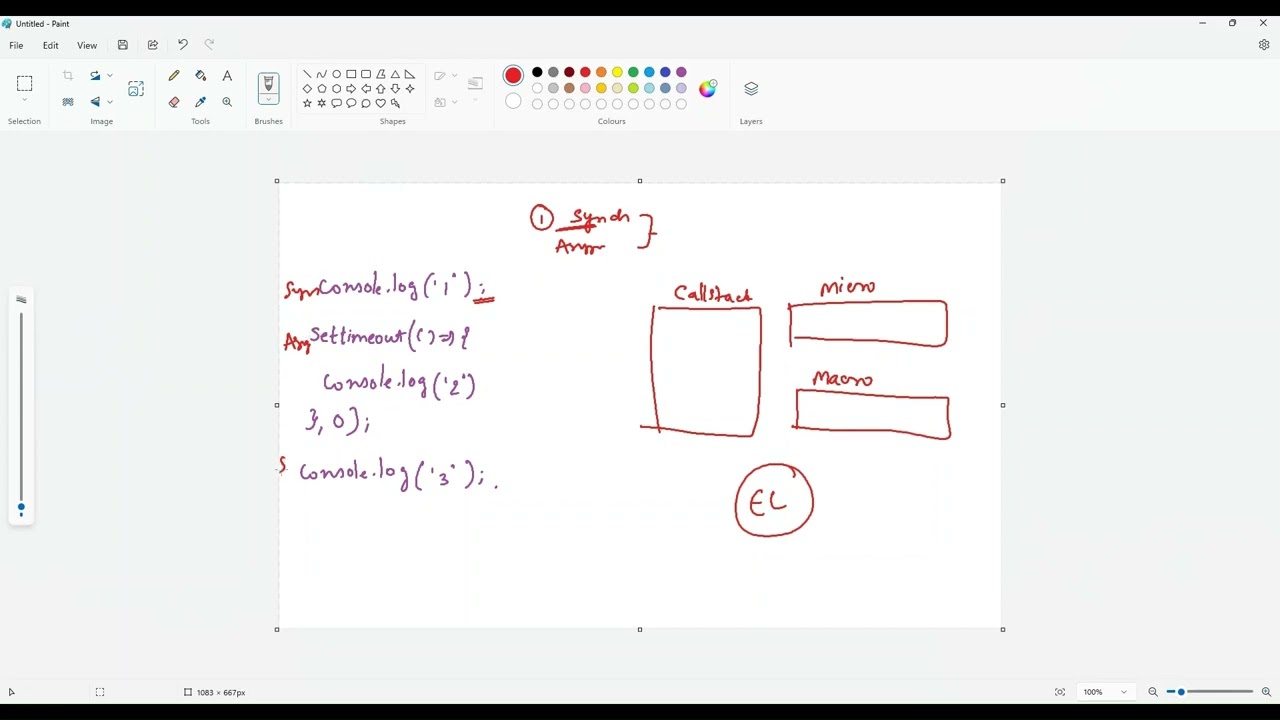 Untitled - Paint
File Edit View
Selection
Image
Tools
Brushes
Shapes
Colours
Layers
① Synch
Asyn
Syn Console.log('1');
Asy Settimeout(() => {
Console.log('2')
}, 0);
S Console.log('3');
Callstack
Micro
Macro
EL
1083 × 667px
100%